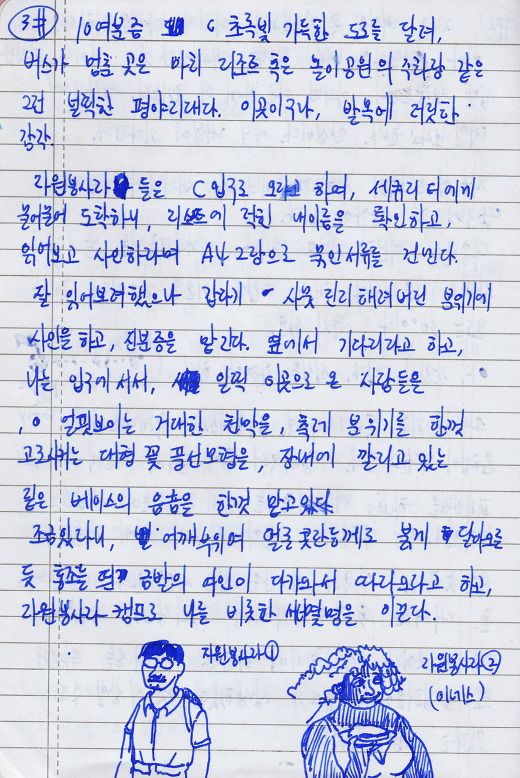 3#
10여분쯤 초록빛 가득한 도로를 달려,
버스가 멈춘 곳은 마치 리조트 혹은 놀이공원의 주차장 같은
그런 널찍한 평야지대다. 이곳이구나, 발목에 저릿한
감각.
자원봉사자들은 C입구로 오라고 하여, 세큐리티에게
물어물어 도착하니, 리스트에 적힌 내이름을 확인하고,
읽어보고 사인하라며 A4 2장으로 묶인 서류를 건넨다.
잘 읽어보려했으나 갑자기 사뭇 진지해져버린 분위기에
사인을 하고, 신분증을 맡긴다. 옆에서 기다리라고 하고,
나는 입구에 서서, 일찍 이곳으로 온 사람들을
, 얼핏보이는 거대한 천막을, 축제 분위기를 한껏
고조시키는 대형 꽃 풍선모형을, 장내에 깔리고 있는
깊은 베이스의 음흠을 한껏 맡고있다.
조금있자니, 어깨부위에 얼룩 곳란등께로 붉게 달아오를
듯 홍조를 띈 금발의 여인이 다가와서 따라오라고 하고,
자원봉사자 캠프로 나를 비롯한 서너명을 이끈다.
자원봉사자①
자원봉사자②
(이네스)